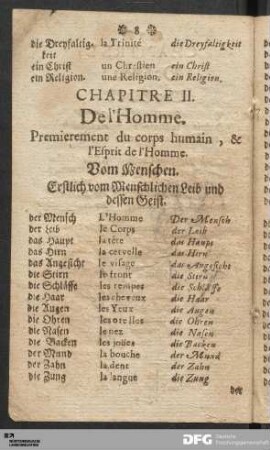 8
die Dreyfaltig- la Trinité die Dreyfaltigkeit
keit
ein Christ un Chrestien ein Christ
ein Religion. une Religion. ein Religion.
CHAPITRE II.
De l'Homme.
Premierement du corps humain, &
l'Esprit de l'Homme.
Vom Menschen.
Erstlich vom Menschlichen Leib und
dessen Geist.
der Mensch L'Homme Der Mensch
der Leib le Corps der Leib
das Haupt la tête das Haupt
das Hirn la cervelle das Hirn
das Angesicht le visage das Angesicht
die Stirn le front die Stirn
die Schläffe les tempes die Schläffe
die Haar les cheveux die Haar
die Augen les Yeux die Augen
die Ohren les oreilles die Ohren
die Nasen le nez die Nasen
die Backen les joües die Backen
der Mund la bouche der Mund
der Zahn la dent der Zahn
die Zung la langue die Zung
DFG Deutsche
Forschungsgemeinschaft